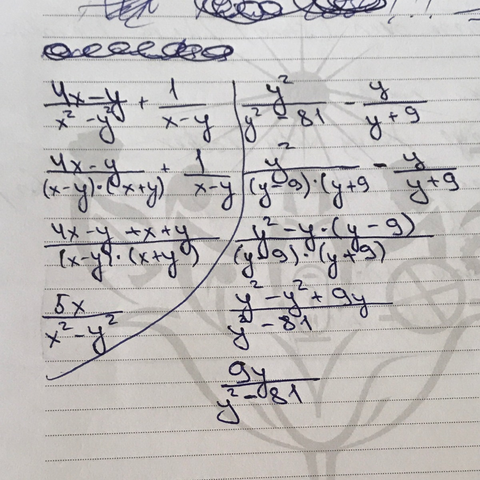 4x-y/x²-y² + 1/x-y
4x-y/(x-y)·(x+y) + 1/x-y
4x-y+x+y/(x-y)·(x+y)
5x/x²-y²
y²/y²-81 - y/y+9
y²/(y-9)·(y+9 - y/y+9
y²-y·(y-9)/(y-9)·(y+9)
y²-y²+9y/y²-81
9y/y²-81